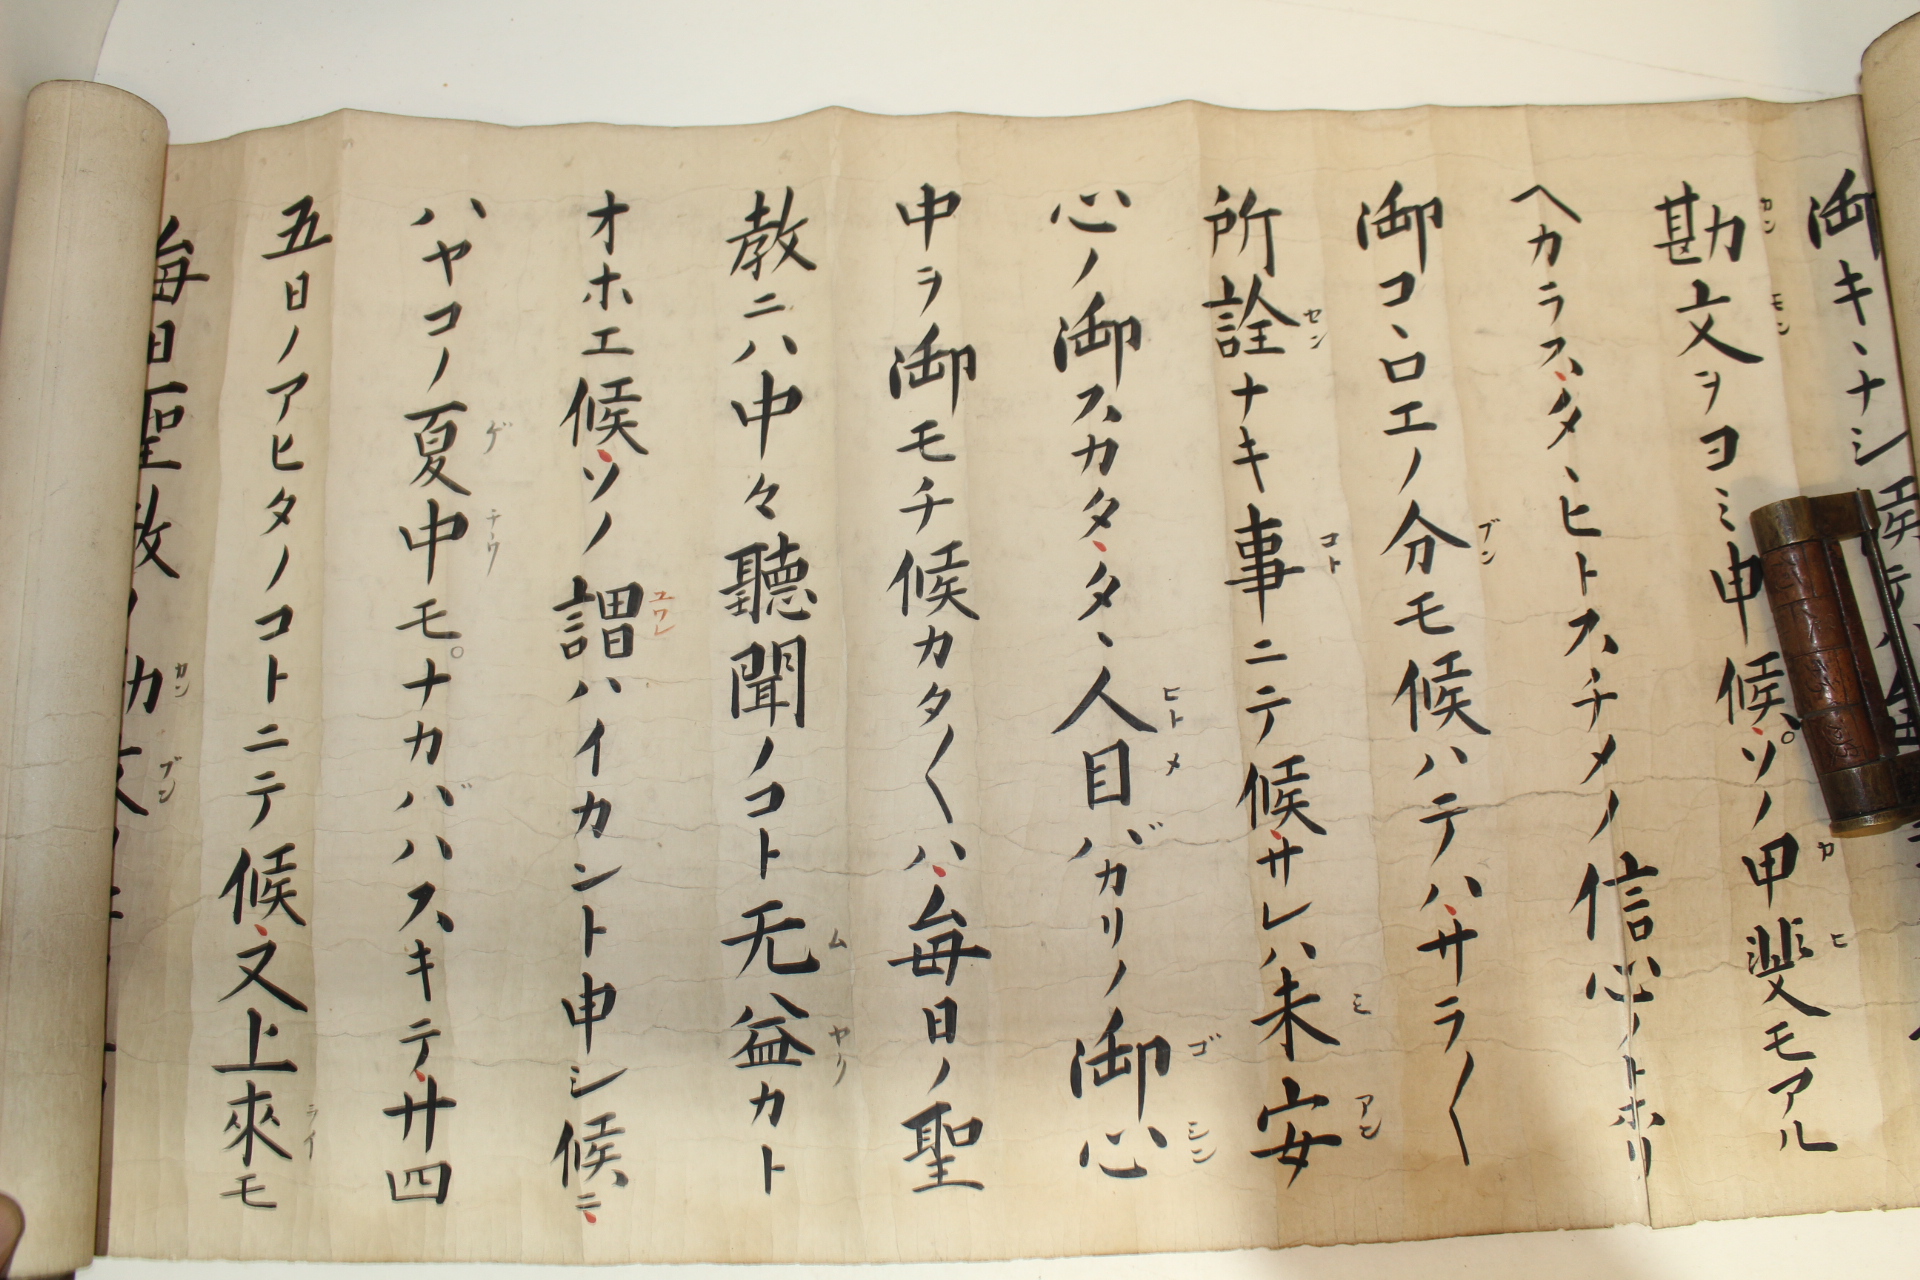 御キヽナシ候テハ
勘文ヲヨミ申候。ソノ甲斐モアル
ヘカラス、タヽヒトスチメノ信心ノトホリ
御コヽロエノ分モ候ハテハ、サラ〱
所詮ナキ事ニテ候、サレハ未安
心ノ御スカタ、タヽ人目バカリノ御心
中ヲ御モチ候カタ〱ハ、毎日ノ聖
教ニハ中々聽聞ノコト无益カト
オホエ候、ソノ謂ハイカント申シ候ニ、
ハヤコノ夏中モ。ナカバハスキテ、廿四
五日ノアヒタノコトニテ候、又上來モ
毎日聖教ノ勘文